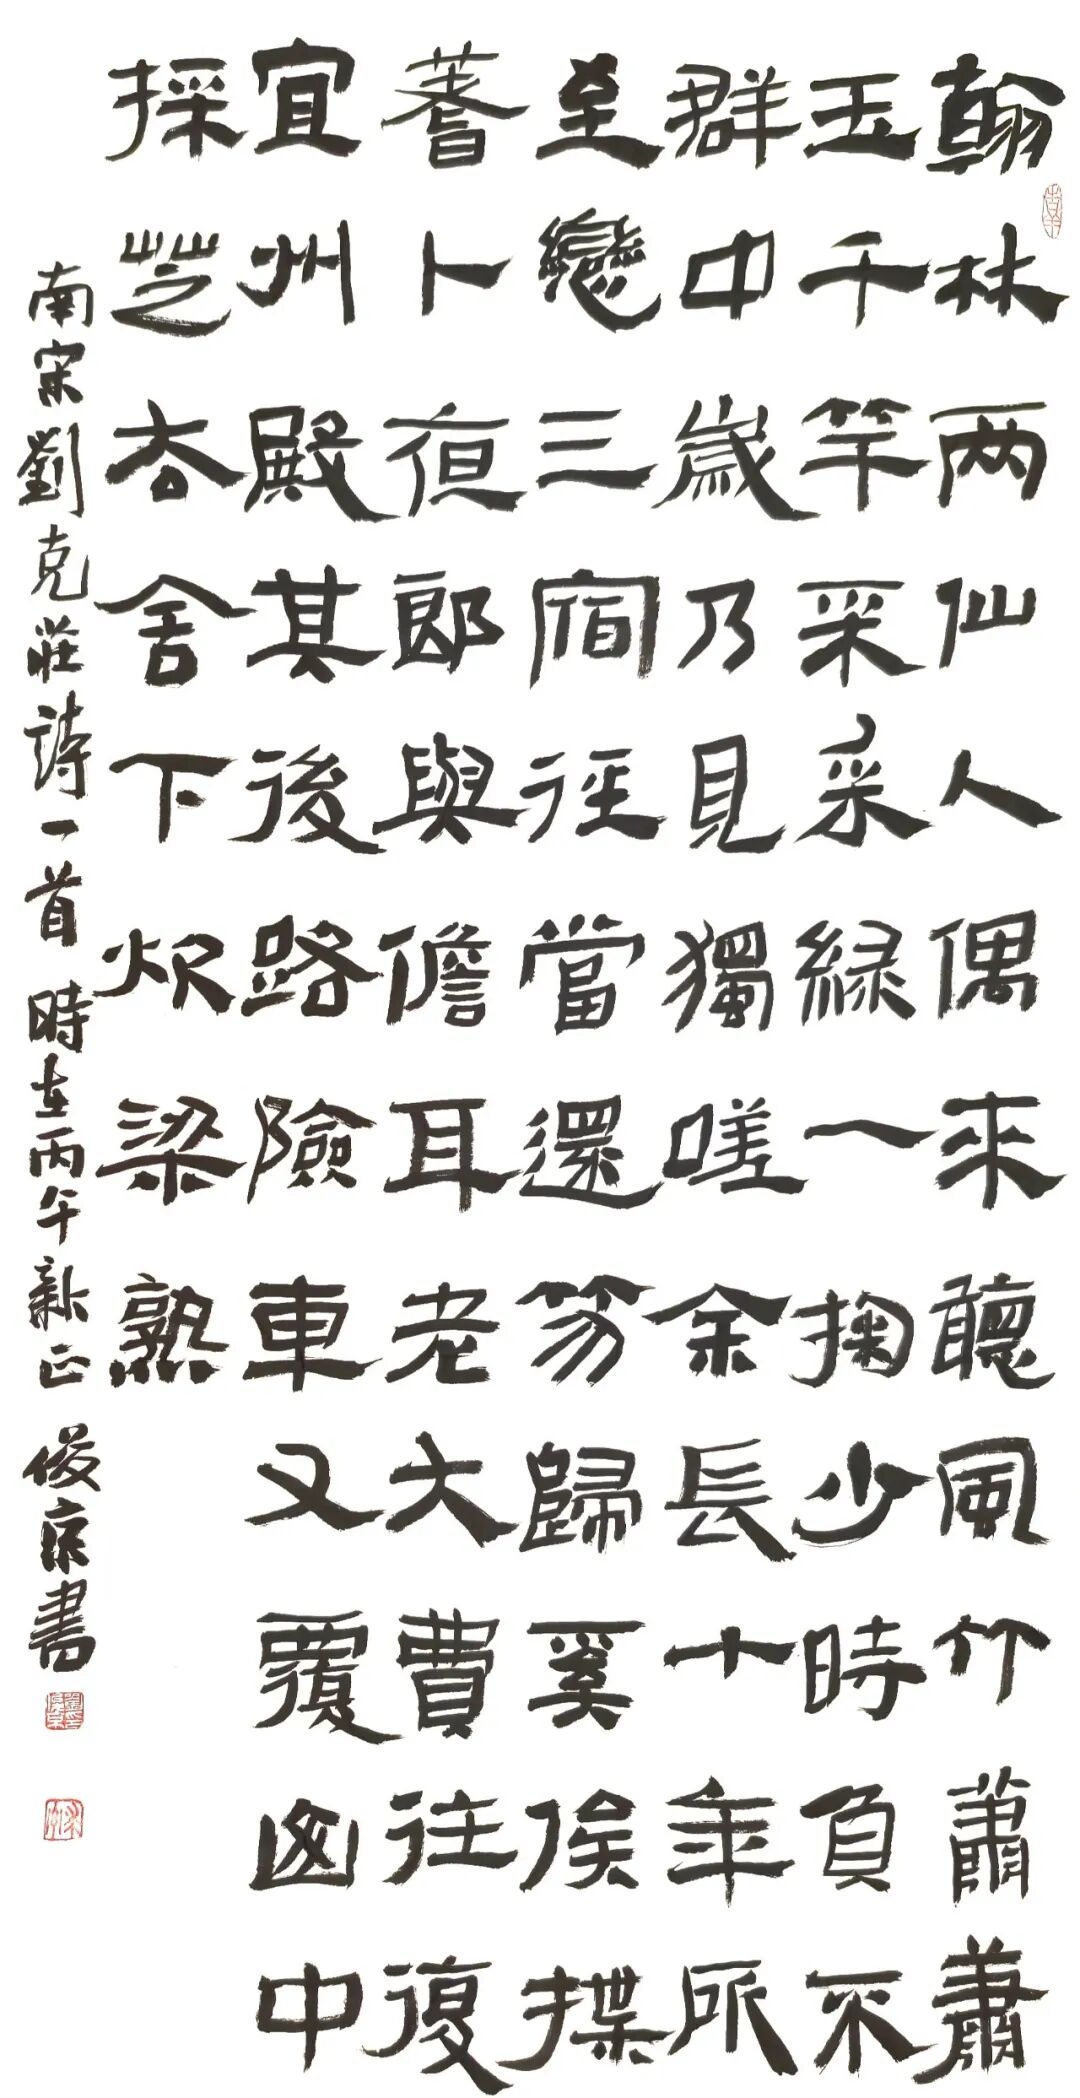 翰林两仙人偶來聽風竹蕭蕭
玉千竿采采綠一掬少時負不
群中歲乃見獨嗟余長十年所
至戀三宿徑當還笏歸奚俟揲
蓍卜夜郎與儋耳老大費往復
宜州殿其後路險車又覆山中
採芝去舍下炊梁熟
南宋劉克莊詩一首 時在丙午新正 俊京書